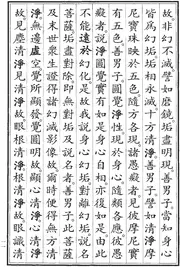 故非幻不滅譬如磨鏡垢盡明現善男子當知身心
皆為幻垢垢相永滅十方清淨善男子譬如清淨摩
尼寶珠映於五色隨方各現諸愚癡者見彼摩尼實
有五色善男子圓覺淨性現於身心隨類各應彼愚
癡者說淨圓覺實有如是身心自相亦復如是由此
不能遠於幻化是故我說身心幻垢對離幻垢說名
菩薩垢盡對除即無對垢及說名者善男子此菩薩
及末世眾生證得諸幻滅影像故爾時便得無方清
淨無邊虛空覺所顯發覺圓明故顯心清淨心清淨
故見塵清淨見清淨故眼根清淨根清淨故眼識清